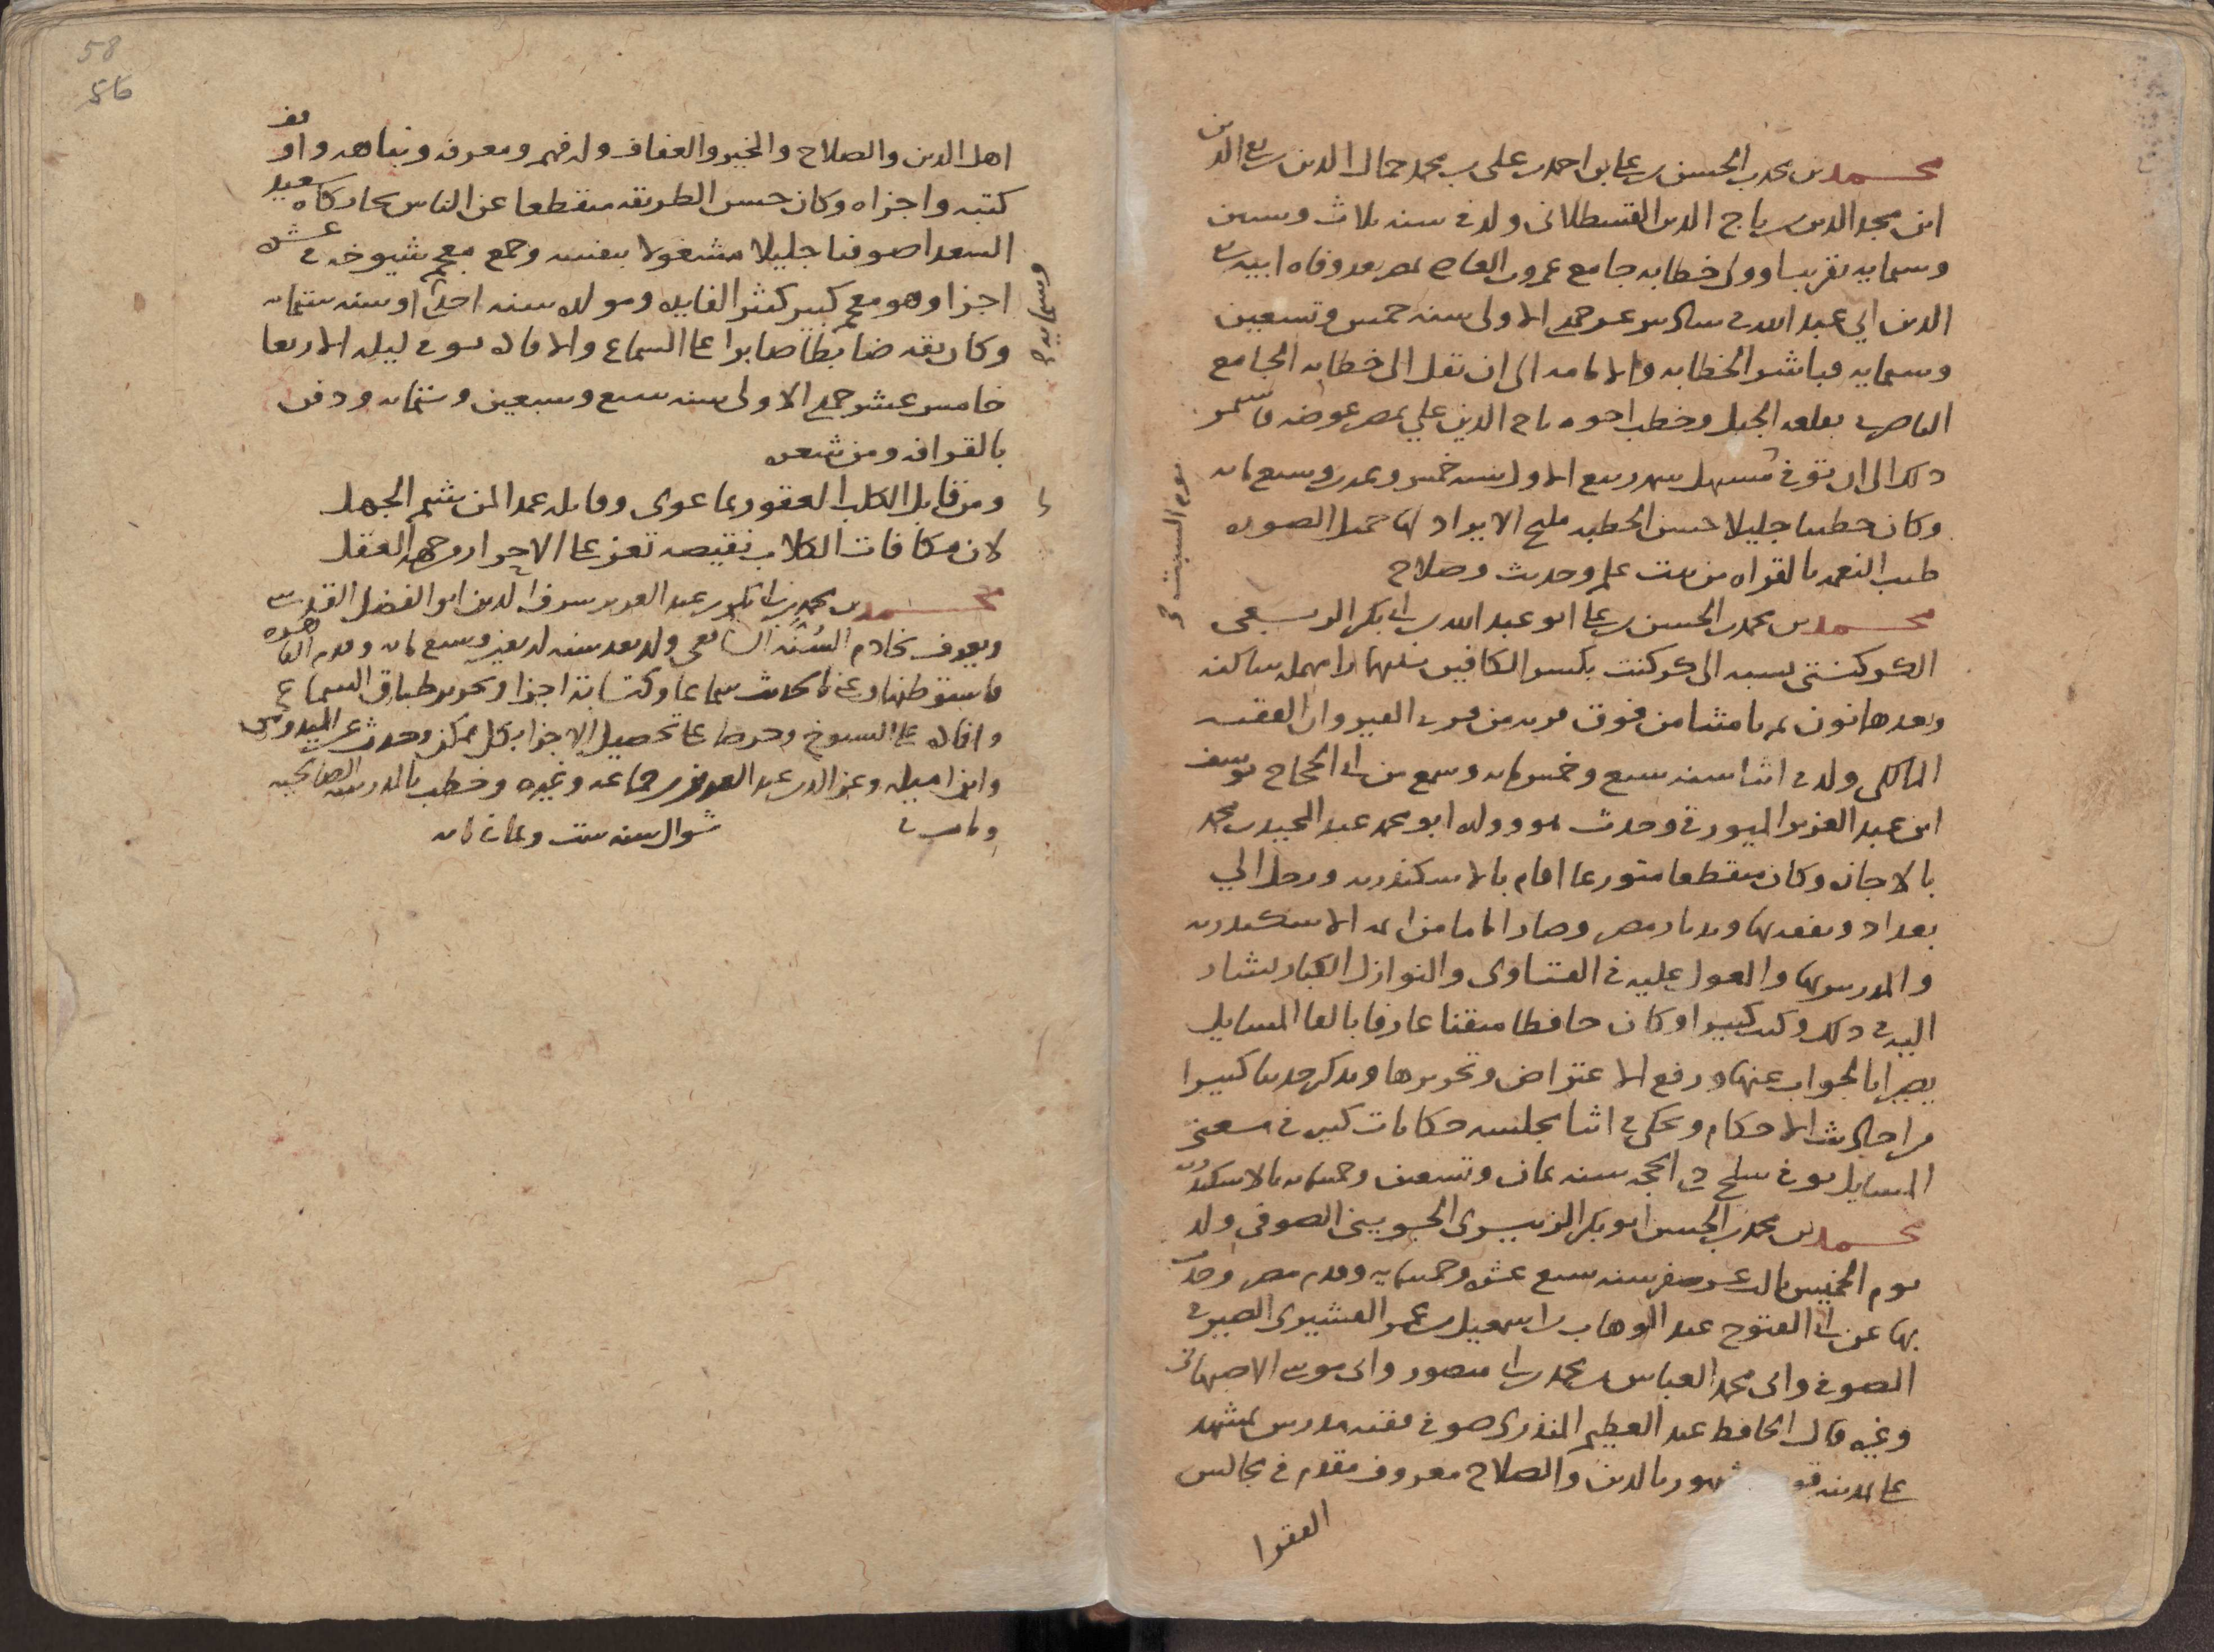 محمد بن محمد بن الحسن بن على بن احمد بن على بن محمد جمال الدين بن تقي الدين
ابن مجد الدين بن تاج الدين القسطلانى ولد فى سنه ثلاث وستين
وستمايه تقريبا وولى خطابه جامع عمرو بن العاص بمصر بعد وفاه ابيه تقى
الدين ابي عبد الله فى سادس عشر جمدى الاولى سنه خمس وتسعين
وستمايه فباشر الخطابه والامامه الى ان نقل الى خطابه الجامع
الناصرى بقلعه الجبل وخطب اخوه تاج الدين علي بمصر عوضه فاستمر
ذلك الى ان توفى مستهل شهر ربيع الاول سنه خمس وعشرين وسبع مايه
يوم السبت
وكان خطيبا جليلا حسن الخطبه مليح الايراد لها جميل الصوره
طيب النغمه بالقراه من بيت علم وحديث وصلاح
محمد بن محمد بن الحسن بن على ابو عبد الله بن ابى بكر الربعى
الكركنتى نسبه الى كركنت بكسر الكافين بينهما را مهمله ساكنه
وبعدها نون ثم تا مثناه من فوق قريه من قرى القيروان الفقيه
المالكى ولد فى اثنا سنه سبع وخمس مايه وسمع من ابى الحجاج يوسف
ابن عبد العزيز الميورقى وحدث هو وولده ابو محمد عبد المجيد بن محمد
بالاجازه وكان منقطعا متورعا اقام بالاسكندريه ورحل الي
بغداد وتفقه بها وبديار مصر وصار اماما من ايمه الاسكندريه
والمدرس بها والمعول عليه فى الفتاوى والنوازل الكبار يشار
اليه فى ذلك وكتب كثيرا وكان حافظا متقنا عارفا بالفا المسايل
بصيرا بالجواب عنها ودفع الاعتراض وتحريرها ويذكر حديثا كثيرا
من احاديث الاحكام ويحكى فى اثنا مجلسه حكايات كثيره فى معنى
المسايل توفى سلخ ذى الحجه سنه ثمان وتسعين وخمسمايه بالاسكندريه
محمد بن محمد بن الحسن ابو بكر الجوينى الصوفى ولد
يوم الخميس ثالث عشر صفر سنه سبع عشره وخمسمايه وقدم مصر وحدث
بها عن ابى الفتوح عبد الوهاب بن اسمعيل بن عمر القشيرى الصيرفى
الصوفى وابى محمد العباس بن محمد بن ابى منصور وابى موسى الاصبهانى
وغيره قال الحافظ عبد العظيم المنذرى صوفى فقيه مدرس بمشهد
على المدينه مشهور بالدين والصلاح معروف مقدم فى مجالس
الفقرا
58
56
اهل الدين والصلاح والخير والعفاف وله فهم ومعرفه ونباهه واوقف
كتبه واجزاه وكان حسن الطريقه منقطعا عن الناس بخانكاه سعيد
السعدا صوفيا جليلا مشغولا بنفسه وجمع معجم شيوخه فى عشره
اجزا وهو معجم كبير كثير الفايده ومولده سنه احدى او سنه ستمايه
وكان ثقه ضابطا صابرا على السماع والافاده توفى ليله الاربعا
خامس عشر جمدى الاولى سنه سبع وسبعين وستمايه ودفن
بالقرافه ومن شعره
ومن قابل الكلب العقور بما عوى وقابله عمدا لمن شيم الجهل
لان مكافات الكلاب نقيصه تعز على الاحرار من جهه العقل
محمد بن محمد بن ابى بكر بن عبد العزيز شرف الدين ابو الفضل القدسى
ويعرف بخادم السنه الشافعى ولد بعد سنه اربعين وسبع مايه وقدم القاهره
فاستوطنها وعنى بالحديث سماعا وكتابه اجزا وتحرير طباق السماع
وافاده على الشيوخ وحرصا على تحصيل الاجزا بكل ممكن وحدث عن الميدومى
وابن اميله وعز الدين عبد العزيز بن جماعه وغيره وخطب بالمدرسه الصالحيه
ومات فى شوال سنه ست وثمان مايه